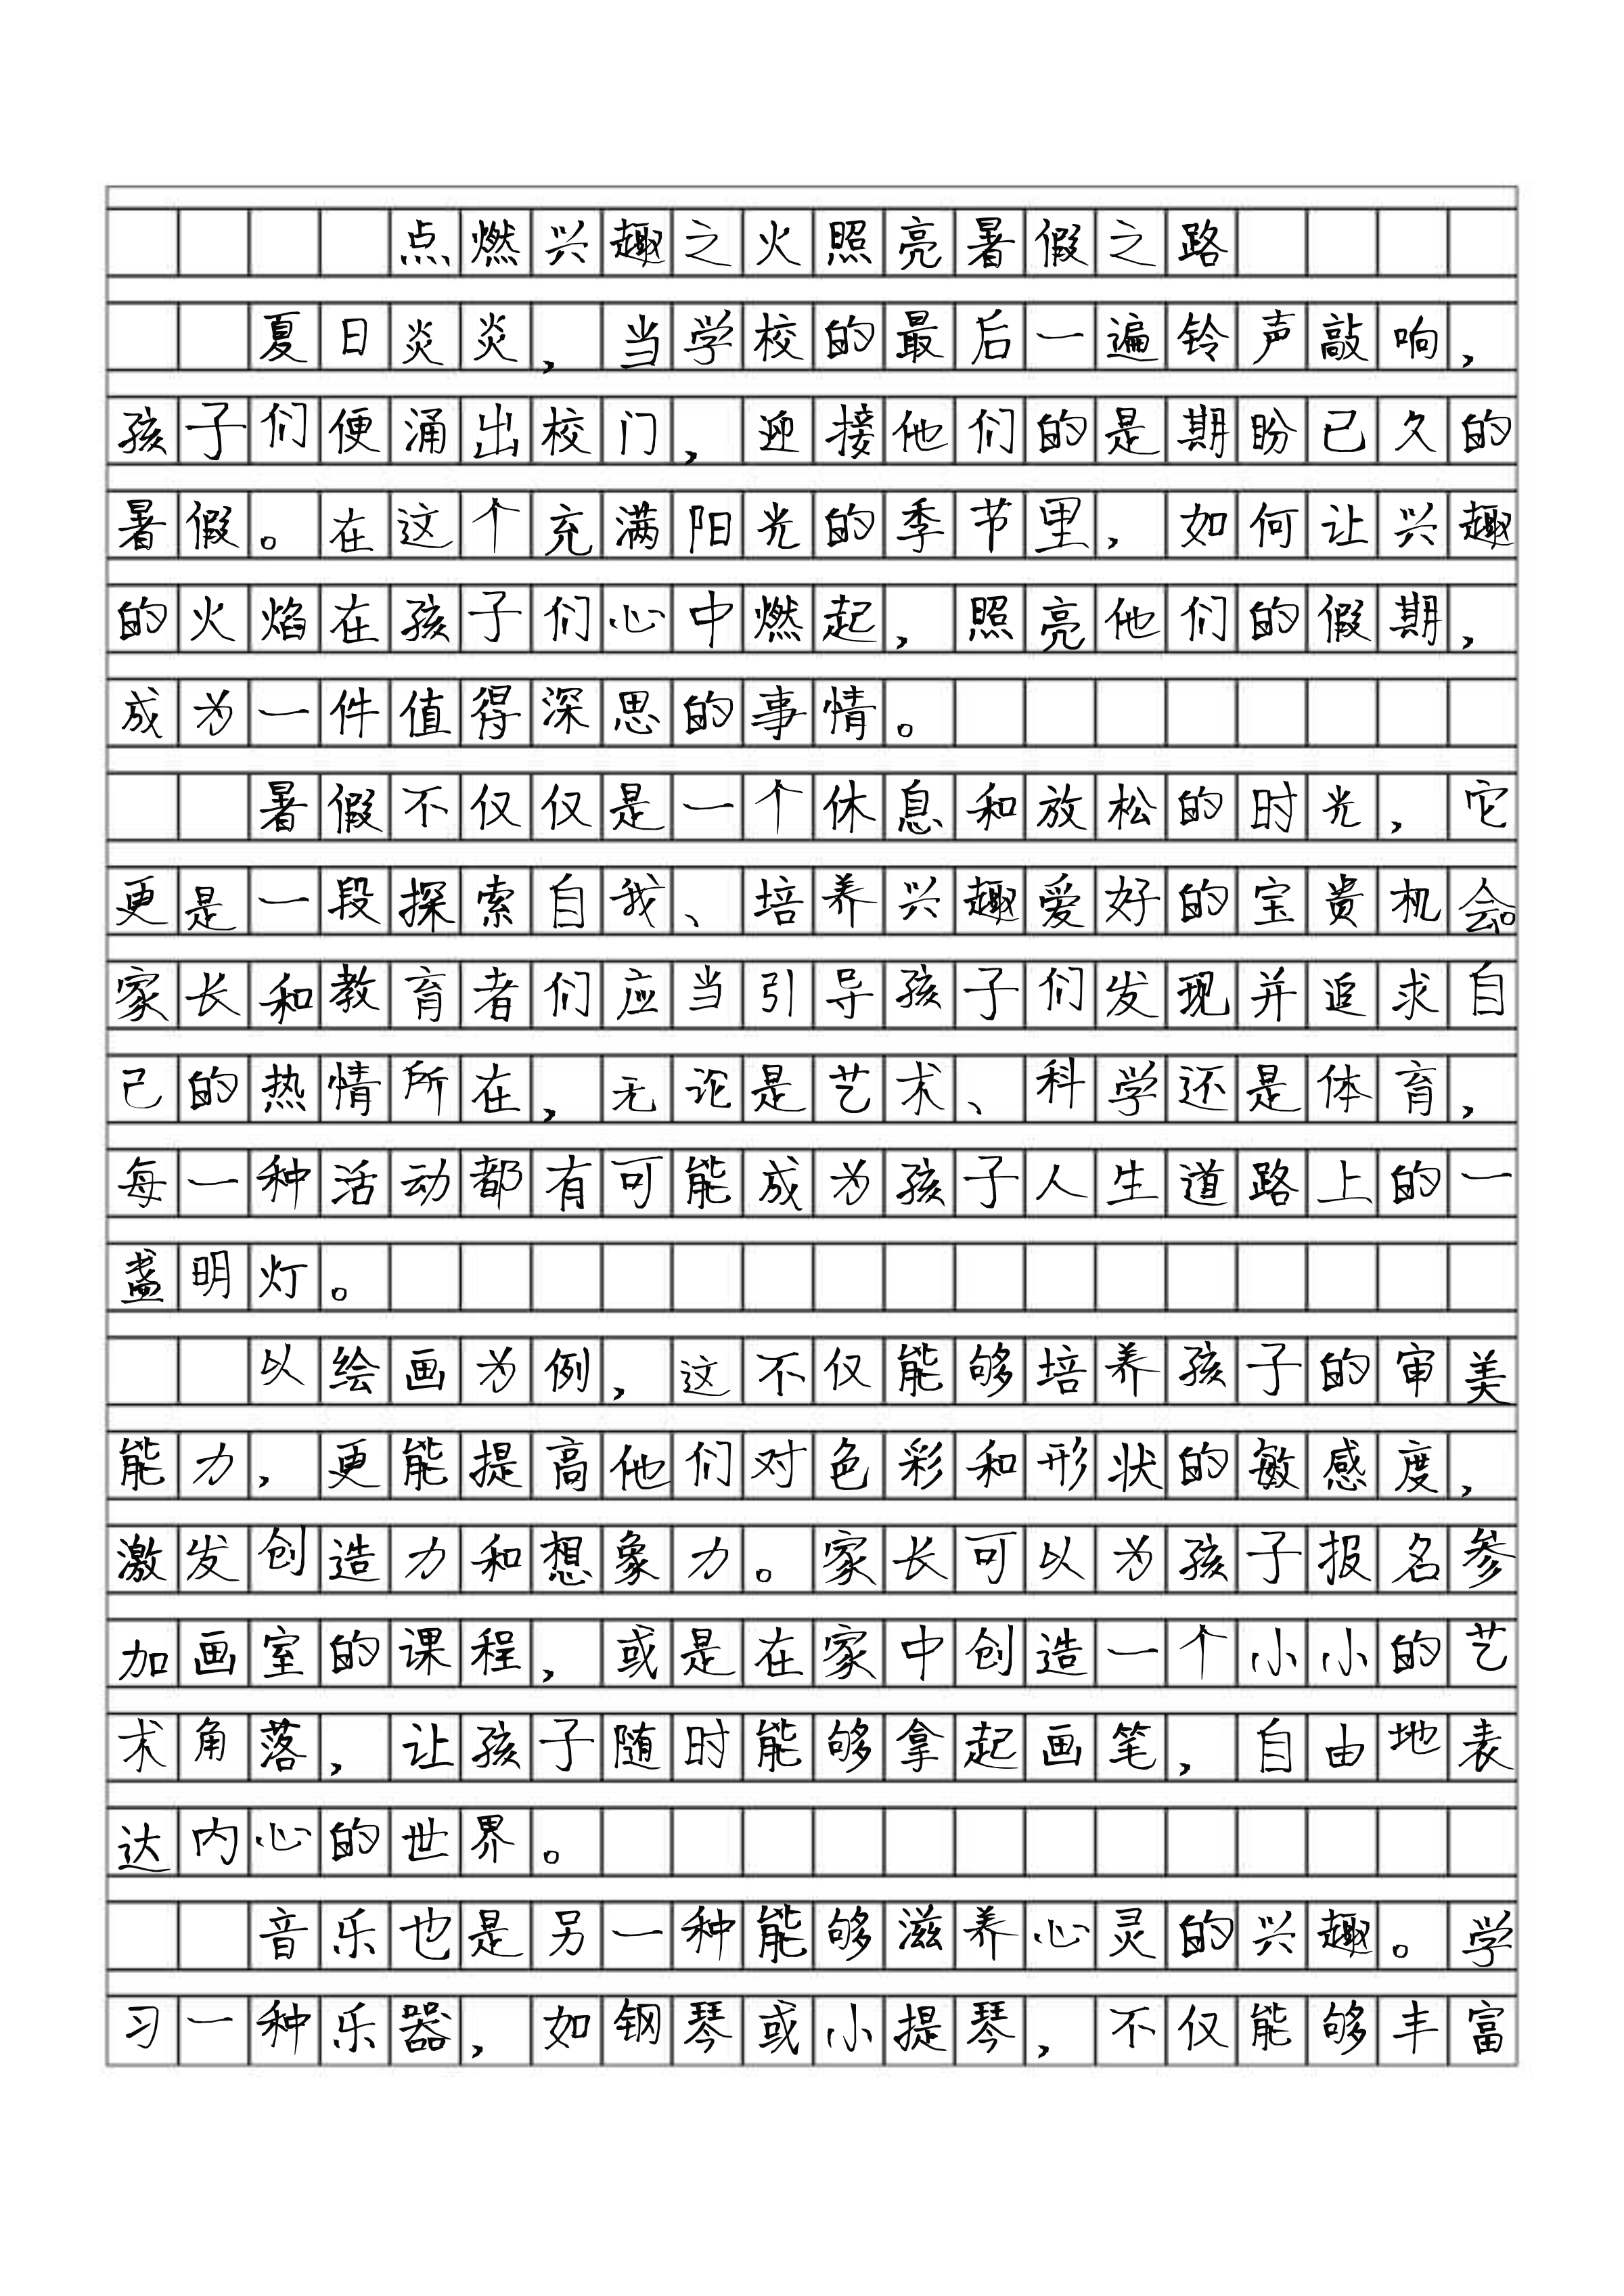 点燃兴趣之火照亮暑假之路
夏日炎炎，当学校的最后一遍铃声敲响，
孩子们便涌出校门，迎接他们的是期盼已久的
暑假。在这个充满阳光的季节里，如何让兴趣
的火焰在孩子们心中燃起，照亮他们的假期，
成为一件值得深思的事情。
暑假不仅仅是一个休息和放松的时光，它
更是一段探索自我、培养兴趣爱好的宝贵机会。
家长和教育者们应当引导孩子们发现并追求自
己的热情所在，无论是艺术、科学还是体育，
每一种活动都有可能成为孩子人生道路上的一
盏明灯。
以绘画为例，这不仅能够培养孩子的审美
能力，更能提高他们对色彩和形状的敏感度，
激发创造力和想象力。家长可以为孩子报名参
加画室的课程，或是在家中创造一个小小的艺
术角落，让孩子随时能够拿起画笔，自由地表
达内心的世界。
音乐也是另一种能够滋养心灵的兴趣。学
习一种乐器，如钢琴或小提琴，不仅能够丰富